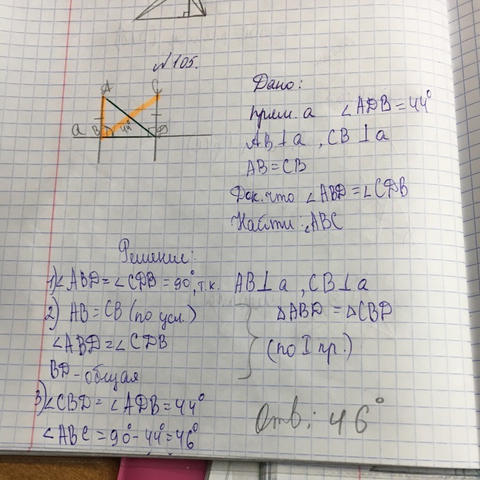 №105.
A C
a B 44° D
Дано:
прям. a ∠ADB = 44°
AB⊥a , CB⊥a
AB=CB
Док. что ∠ABD = ∠CDB
Найти: ∠ABC
Решение:
1) ∠ABD = ∠CDB = 90°, т.к. AB⊥a , CB⊥a
2) AB = CB (по усл.) ΔABD = ΔCBD
∠ABD = ∠CDB (по I пр.)
BD - общая
3) ∠CBD = ∠ADB = 44°
∠ABC = 90° - 44° = 46°
Отв: 46°